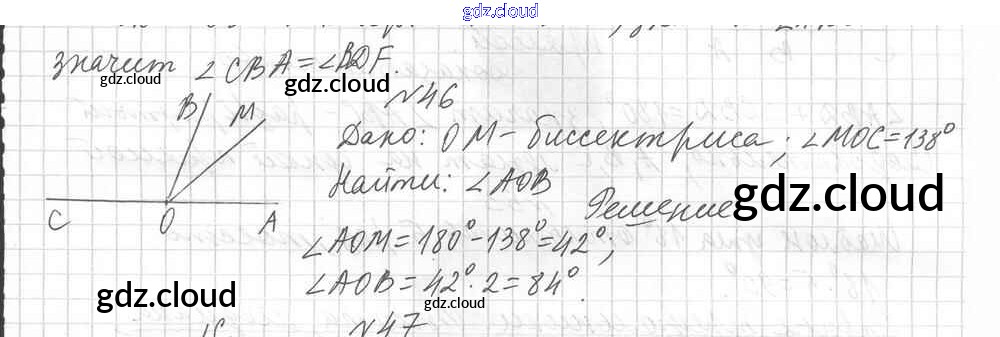 gdz.cloud
значит ∠CBA=∠BDF.
gdz.cloud
gdz.cloud
N46
B M
Дано: OM-биссектриса; ∠MOC=138°
Найти: ∠AOB
gdz.cloud
Решение
C O A
∠AOM=180°-138°=42°;
∠AOB=42°·2=84°.
gdz.cloud
gdz.cloud
gdz.cloud
N47